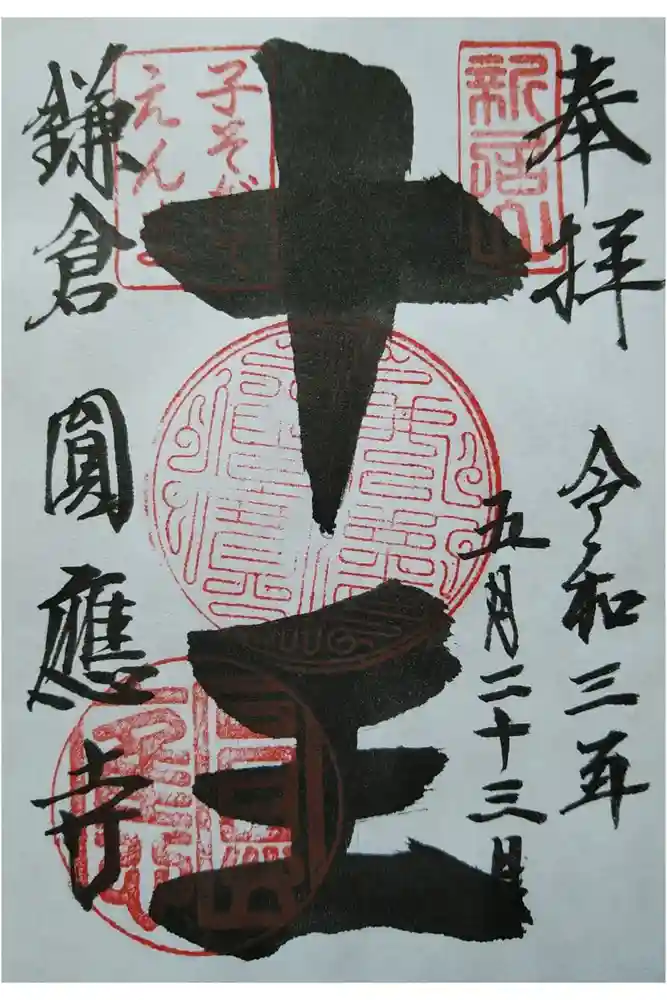 奉拝
令和三年
五月二十三日
十王
鎌倉 圓應寺
新居山
子そだて
えんま